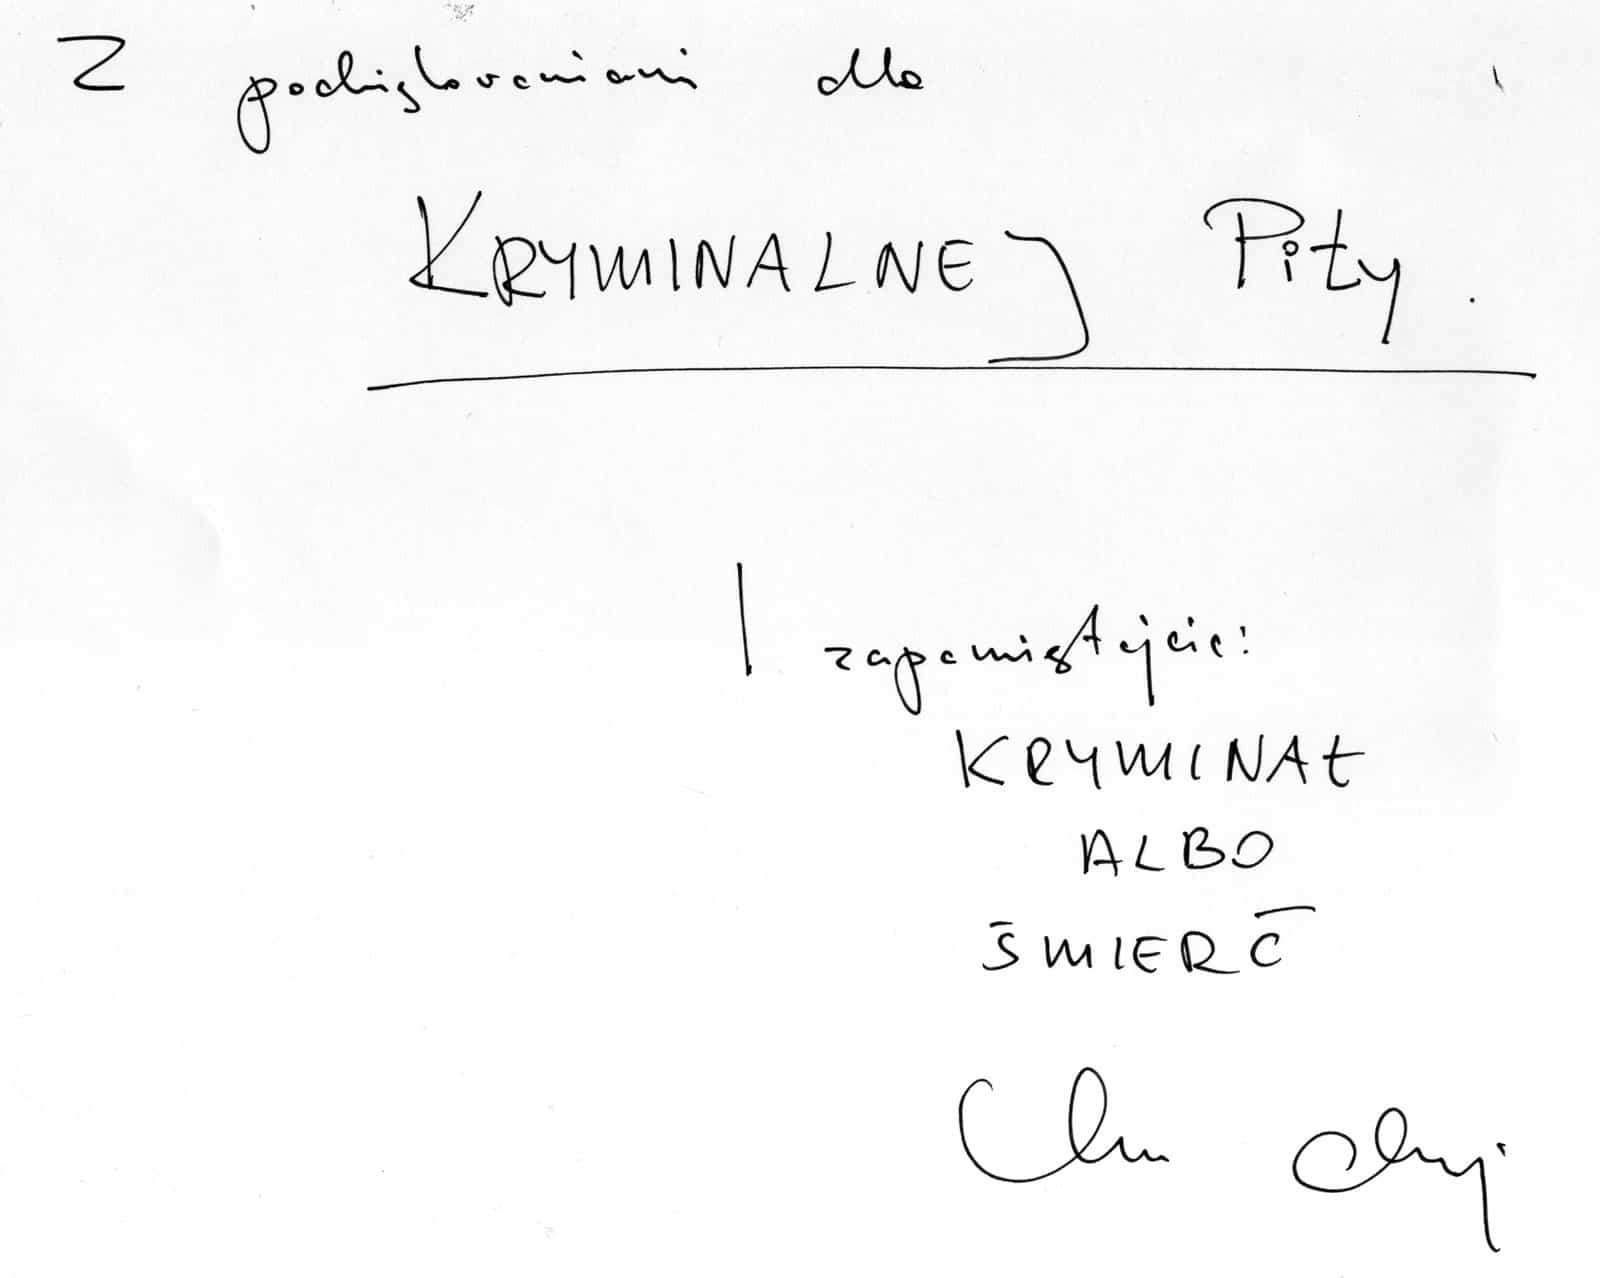 Z podziękowaniami dla
KRYMINALNEJ Piły.
I zapamiętajcie:
KRYMINAŁ
ALBO
ŚMIERĆ